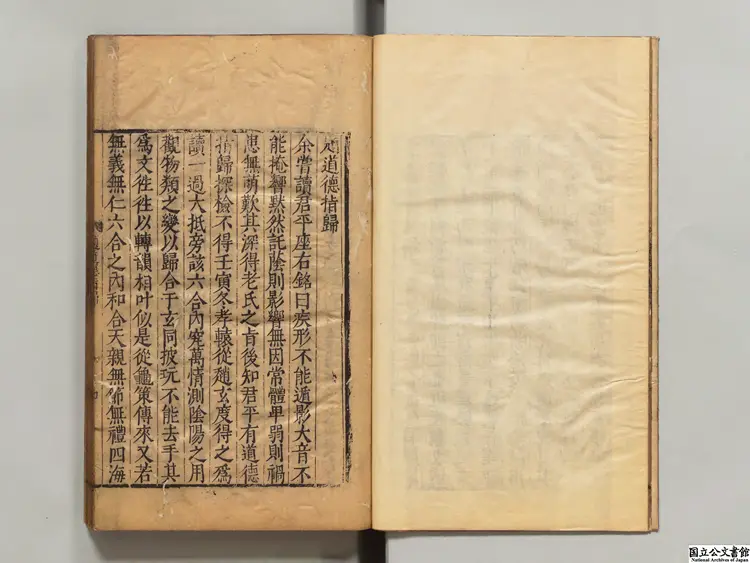 道德指歸
余嘗讀君平座右銘曰疾形不能遁影大音不
能掩響默然託蔭則影響無因常體卑弱則禍
患無萌歎其深得老氏之㫖後知君平有道德
指歸探檢不得壬寅冬孝轅從趙玄度得之爲
讀一過大抵旁該六合內究萬情測陰陽之用
觀物類之變以歸合于玄同披玩不能去手其
爲文徃徃以轉韻相叶似是從龜策傳來又若
無義無仁六合之內和合天親無節無禮四海
国立公文書館
National Archives of Japan